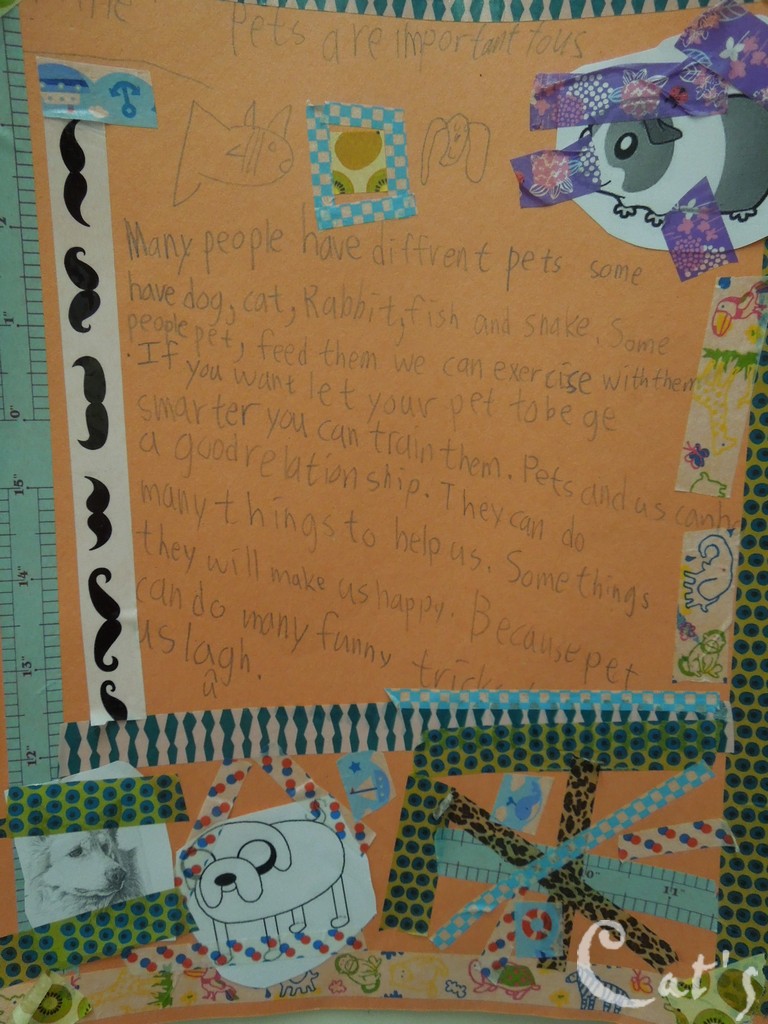 The Pets are important to us
Many people have diffrent pets some
have dog, cat, Rabbit, fish and snake. Some
people pet, feed them we can exercise with them
. If you want let your pet to be ge
smarter you can train them. Pets and us can h
a good relationship. They can do
many things to help us. Some things
they will make us happy. Because pet
can do many funny trick
us lagh.
u
2"
1"
0"
15"
14"
13"
12"
0"
11"
Cat's